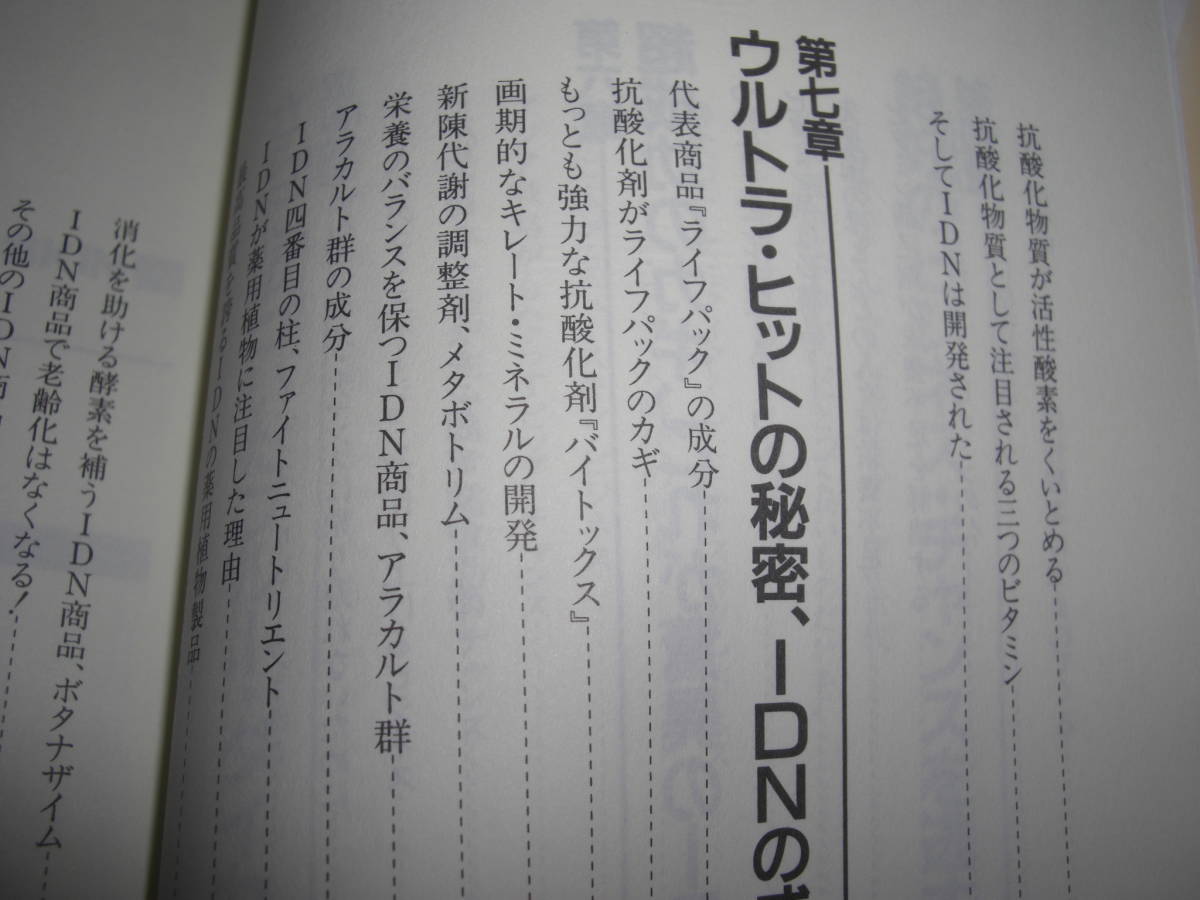 抗酸化物質が活性酸素をくいとめる
抗酸化物質として注目される三つのビタミン
そしてIDNは開発された
第七章
ウルトラ・ヒットの秘密、IDNの
代表商品『ライフパック』の成分
抗酸化剤がライフパックのカギ
もっとも強力な抗酸化剤『バイトックス』
画期的なキレート・ミネラルの開発
新陳代謝の調整剤、メタボトリム
栄養のバランスを保つIDN商品、アラカルト群
アラカルト群の成分
IDN四番目の柱、ファイトニュートリエント
IDNが薬用植物に注目した理由
最高品質を誇るIDNの薬用植物製品
消化を助ける酵素を補うIDN商品、ボタナザイム
IDN商品で老齢化はなくなる！
その他のIDN商